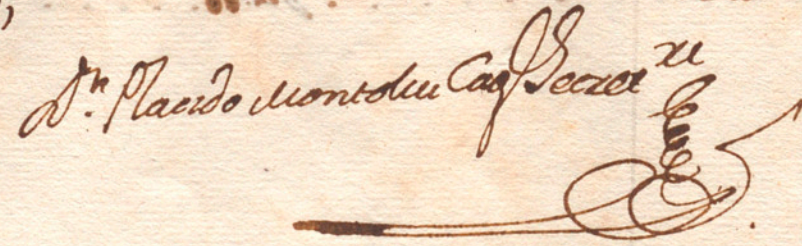 Dn. Placido Montoliu Cag. Secret.